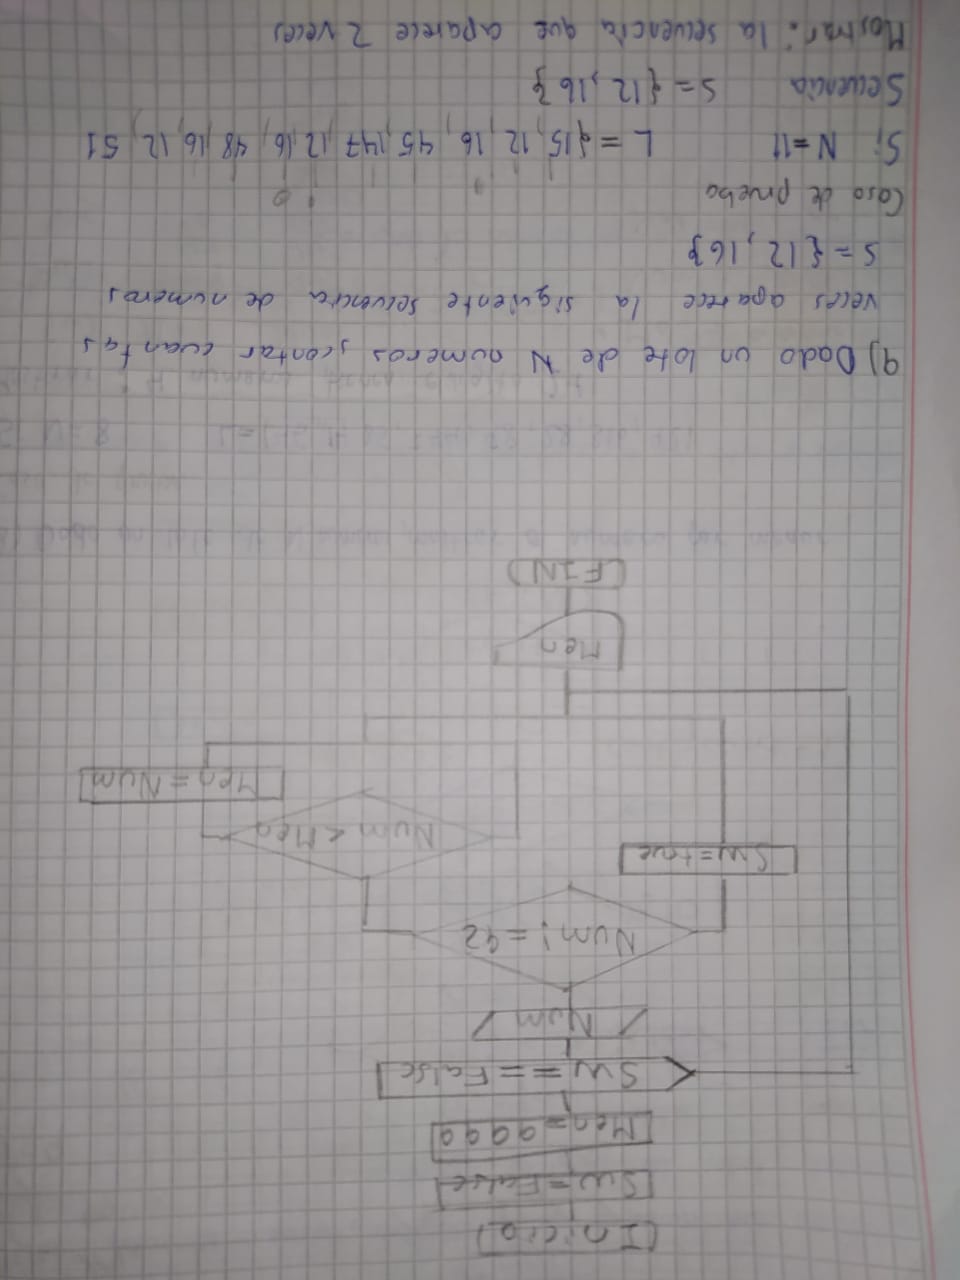 Inicio
Sw=False
Men=9999
Sw == False
Num
Num != 42
Sw=true
Num < Men
Men = Num
Men
FIN
9) Dado un lote de N numeros, contar cuantas
veces aparece la siguiente secuencia de numeros
S = {12, 16}
Caso de prueba
Si N=11 L = {15, 12, 16, 45, 147, 12, 16, 48, 16, 12, 51
Secuencia S = {12, 16}
Mostrar: la secuencia que aparece 2 veces